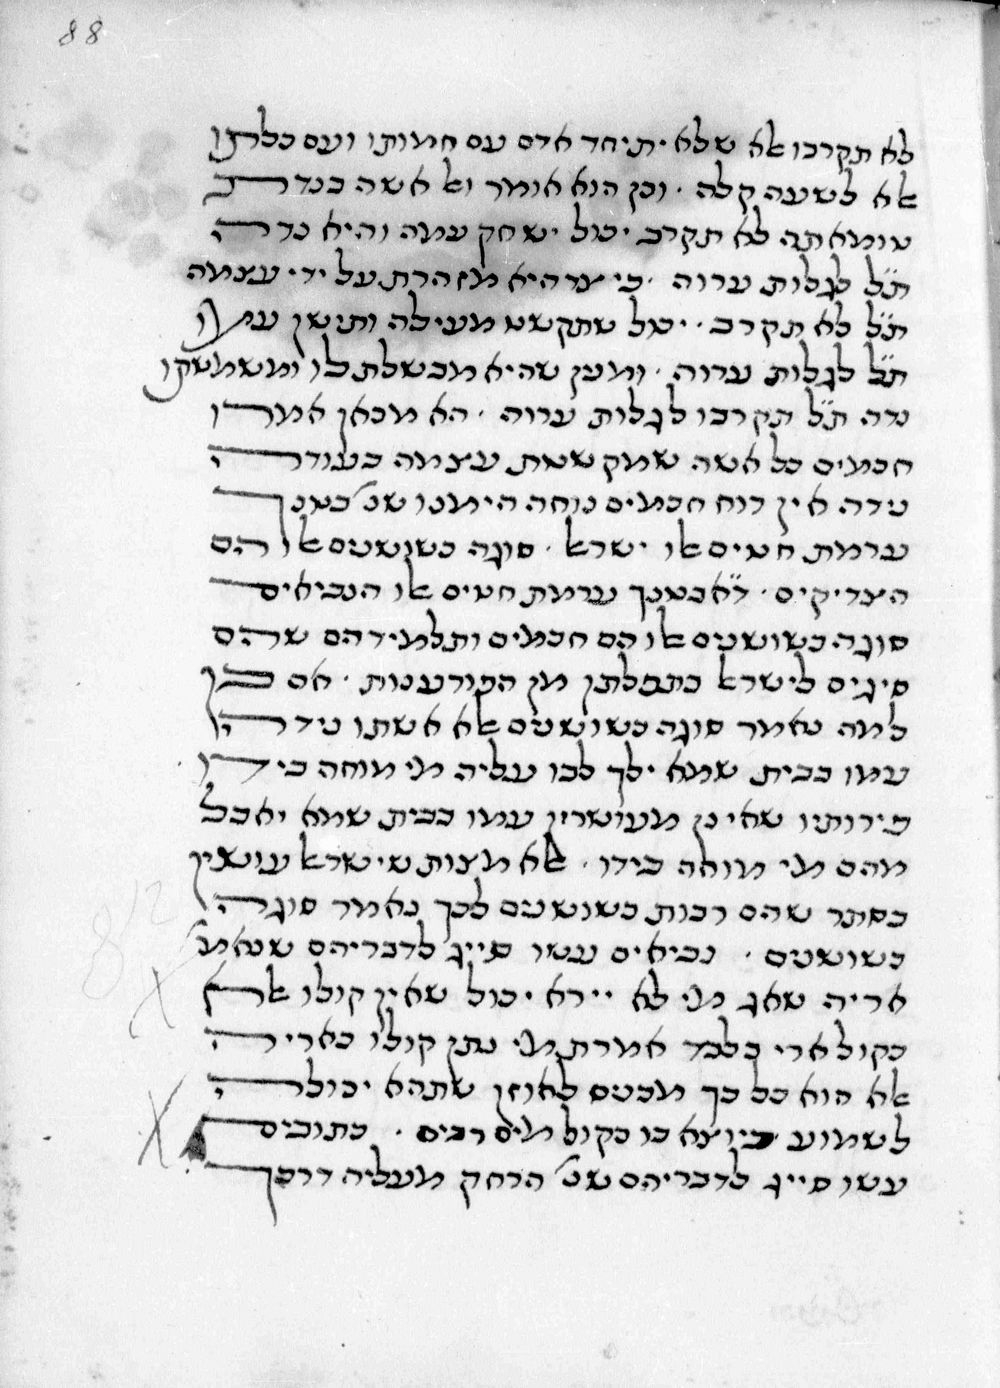 88
לא תקרבו אלא שלא יתיחד אדם עם חמותו ועם כלתו
אלא לשעה קלה . וכן הוא אומר ואל אשה בנדת
טומאתה לא תקרב יכול ישחק עמה והיא נדה
ת״ל לגלות ערוה . כי עד היא מזהרת על ידי עצמה
ת״ל לא תקרב . יכול שתקשט מעילה ותישן עמו
ת״ל לגלות ערוה . ומנין שהיא מבשלת לו ומשמשתו
נדה ת״ל תקרבו לגלות ערוה . הא מכאן אמרו
חכמים כל אשה שמקשטת עצמה בעודה
נידה אין רוח חכמים נוחה הימנו שנ׳ בטנך
ערמת חטים אלו ישראל . סוגה בשושנים אלו הם
הצדיקים . ד״א בטנך ערמת חטים אלו הנביאים
סוגה בשושנים אלו הם חכמים ותלמידהם שהם
סיגים לישראל בתפלתן מן הפורענות . אם כן
למה נאמר סוגה בשושנים אלא אשתו נידה
עמו בבית שמא ילך לבו עליה מי מוחה בידו
פירותיו שאינן מעושרין עמו בבית שמא יאכל
מהם מי מוחה בידו . אלא מצות שישראל עושין
בסתר שהם רכות כשושנים לכך נאמר סוגה
בשושנים . נביאים עשו סייג לדבריהם שנאמ׳
אריה שאג מי לא יירא יכול שאין קולו אלא
כקול ארי בלבד אמרת מי נתן קולו כאריה
אלא הוא כל כך מכנים לאוזן שתהא יכולה
לשמוע כיוצא בו כקול מים רבים . כתובים
עשו סייג לדבריהם שנ׳ הרחק מעליה דרכך